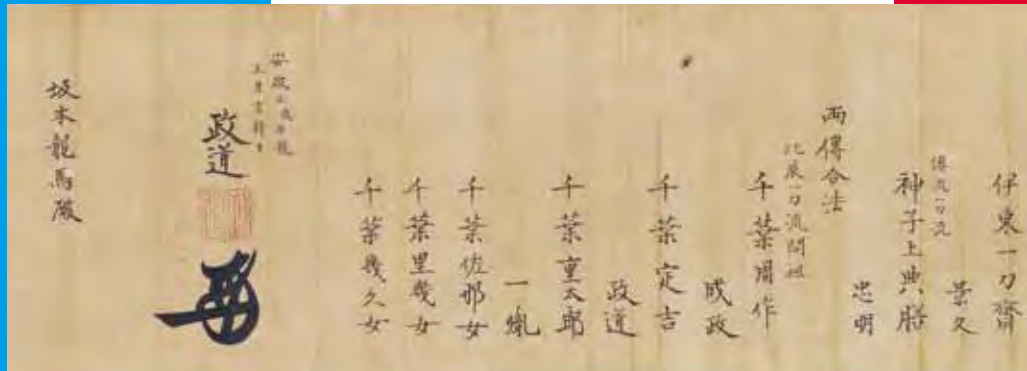 伊東一刀齋
景久
一刀流
神子上典膳
忠明
兩傳合法
北辰一刀流開祖
千葉周作
成政
千葉定吉
政道
千葉重太郎
一胤
千葉佐那女
千葉里幾女
千葉幾久女
安政五戊午
正月吉祥日
政道
坂本龍馬殿